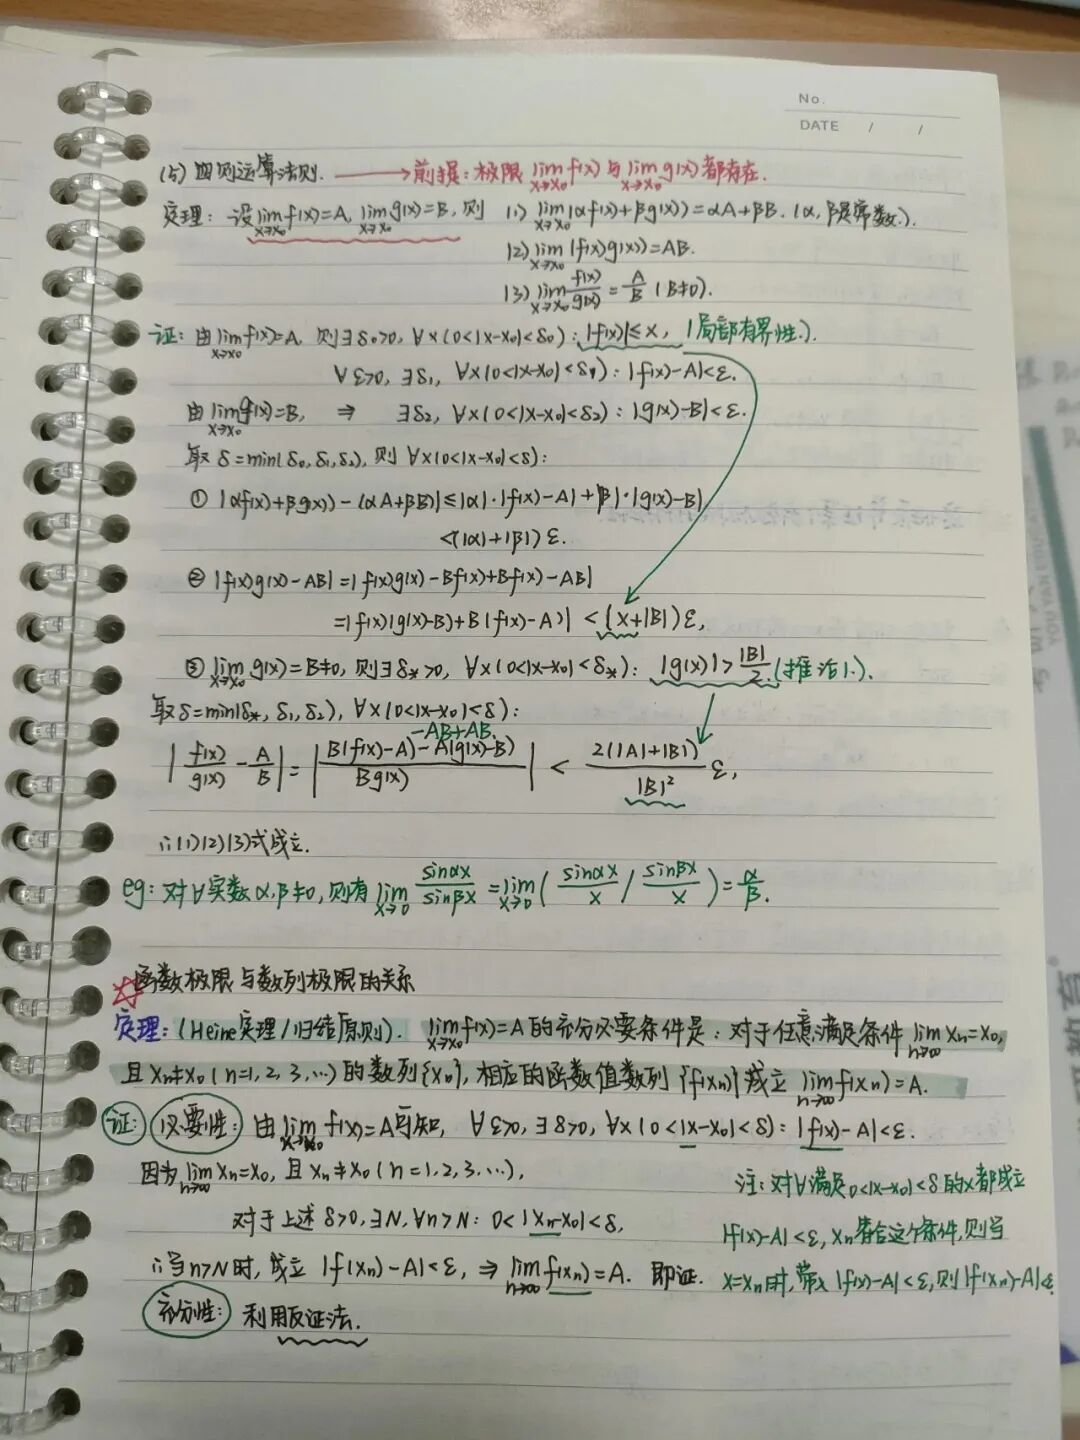 No.
DATE / /
(5) 四则运算法则. ⟶ 前提: 极限 lim_{x→x₀} f(x) 与 lim_{x→x₀} g(x) 都存在.
定理: 设 lim_{x→x₀} f(x)=A, lim_{x→x₀} g(x)=B, 则 (1) lim_{x→x₀} (αf(x)+βg(x))=αA+βB. (α, β是常数).
(2) lim_{x→x₀} (f(x)g(x))=AB.
(3) lim_{x→x₀} f(x)/g(x) = A/B (B≠0).
证: 由 lim_{x→x₀} f(x)=A, 则∃δ₀>0, ∀x(0<|x-x₀|<δ₀): |f(x)|≤X, (局部有界性).
∀ε>0, ∃δ₁, ∀x(0<|x-x₀|<δ₁): |f(x)-A|<ε.
由 lim_{x→x₀} g(x)=B, ⇒ ∃δ₂, ∀x(0<|x-x₀|<δ₂): |g(x)-B|<ε.
取 δ=min(δ₀,δ₁,δ₂), 则 ∀x(0<|x-x₀|<δ):
① |αf(x)+βg(x))-(αA+βB)|≤|α|·|f(x)-A|+|β|·|g(x)-B|
<(|α|+|β|)ε.
② |f(x)g(x)-AB|=|f(x)g(x)-Bf(x)+Bf(x)-AB|
=|f(x)(g(x)-B)+B(f(x)-A)| <(X+|B|)ε,
③ lim_{x→x₀} g(x)=B≠0, 则∃δ*>0, ∀x(0<|x-x₀|<δ*): |g(x)|>|B|/2. (推论1.).
取δ=min(δ*, δ₁, δ₂), ∀x(0<|x-x₀|<δ):
-AB+AB.
|f(x)/g(x) - A/B| = |B(f(x)-A)-A(g(x)-B) / Bg(x)| < 2(|A|+|B|)/|B|² ε,
∴(1)(2)(3)式成立.
eg: 对∀实数α,β≠0, 则有 lim_{x→0} sinαx/sinβx = lim_{x→0} ( sinαx/x / sinβx/x ) = α/β.
☆函数极限与数列极限的关系
定理: (Heine定理/归结原则). lim_{x→x₀} f(x)=A 的充分必要条件是: 对于任意满足条件 lim_{n→∞} xₙ=x₀,
且 xₙ≠x₀ (n=1,2,3,…) 的数列{xₙ}, 相应的函数值数列 {f(xₙ)} 成立 lim_{n→∞} f(xₙ)=A.
证: 必要性: 由 lim_{x→x₀} f(x)=A可知, ∀ε>0, ∃δ>0, ∀x(0<|x-x₀|<δ): |f(x)-A|<ε.
因为 lim_{n→∞} xₙ=x₀, 且 xₙ≠x₀ (n=1,2,3,…),
对于上述 δ>0, ∃N, ∀n>N: 0<|xₙ-x₀|<δ,
∴当n>N时, 成立 |f(xₙ)-A|<ε, ⇒ lim_{n→∞} f(xₙ)=A. 即证.
注: 对∀满足0<|x-x₀|<δ的x都成立
|f(x)-A|<ε, xₙ符合这个条件, 则当
x=xₙ时, 带入 |f(x)-A|<ε, 则|f(xₙ)-A|<ε
充分性: 利用反证法.